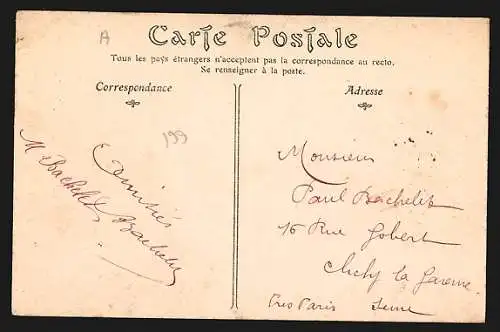 A
Carte Postale
Tous les pays étrangers n'acceptent pas la correspondance au recto.
Se renseigner à la poste.
Correspondance
Adresse
199
Amitiés
M Bachelet
Bachelet
Monsieur
Paul Bachelet
16 Rue Jobert
Clichy la Garenne
Près Paris Seine